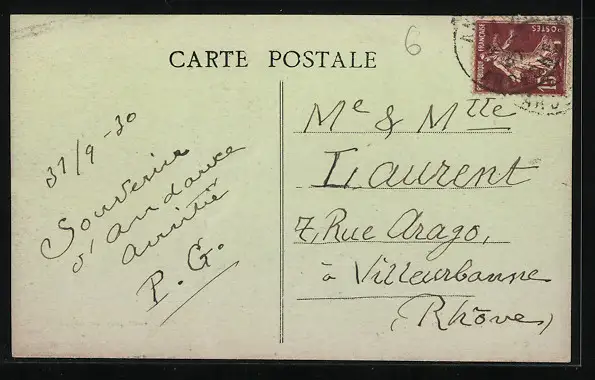 CARTE POSTALE
6
POSTES
15c
31/9-30
Souvenir
d'Andance
amitié
P. G.
Me & Mlle
Laurent
7, Rue Arago,
à Villeurbanne
(Rhône)